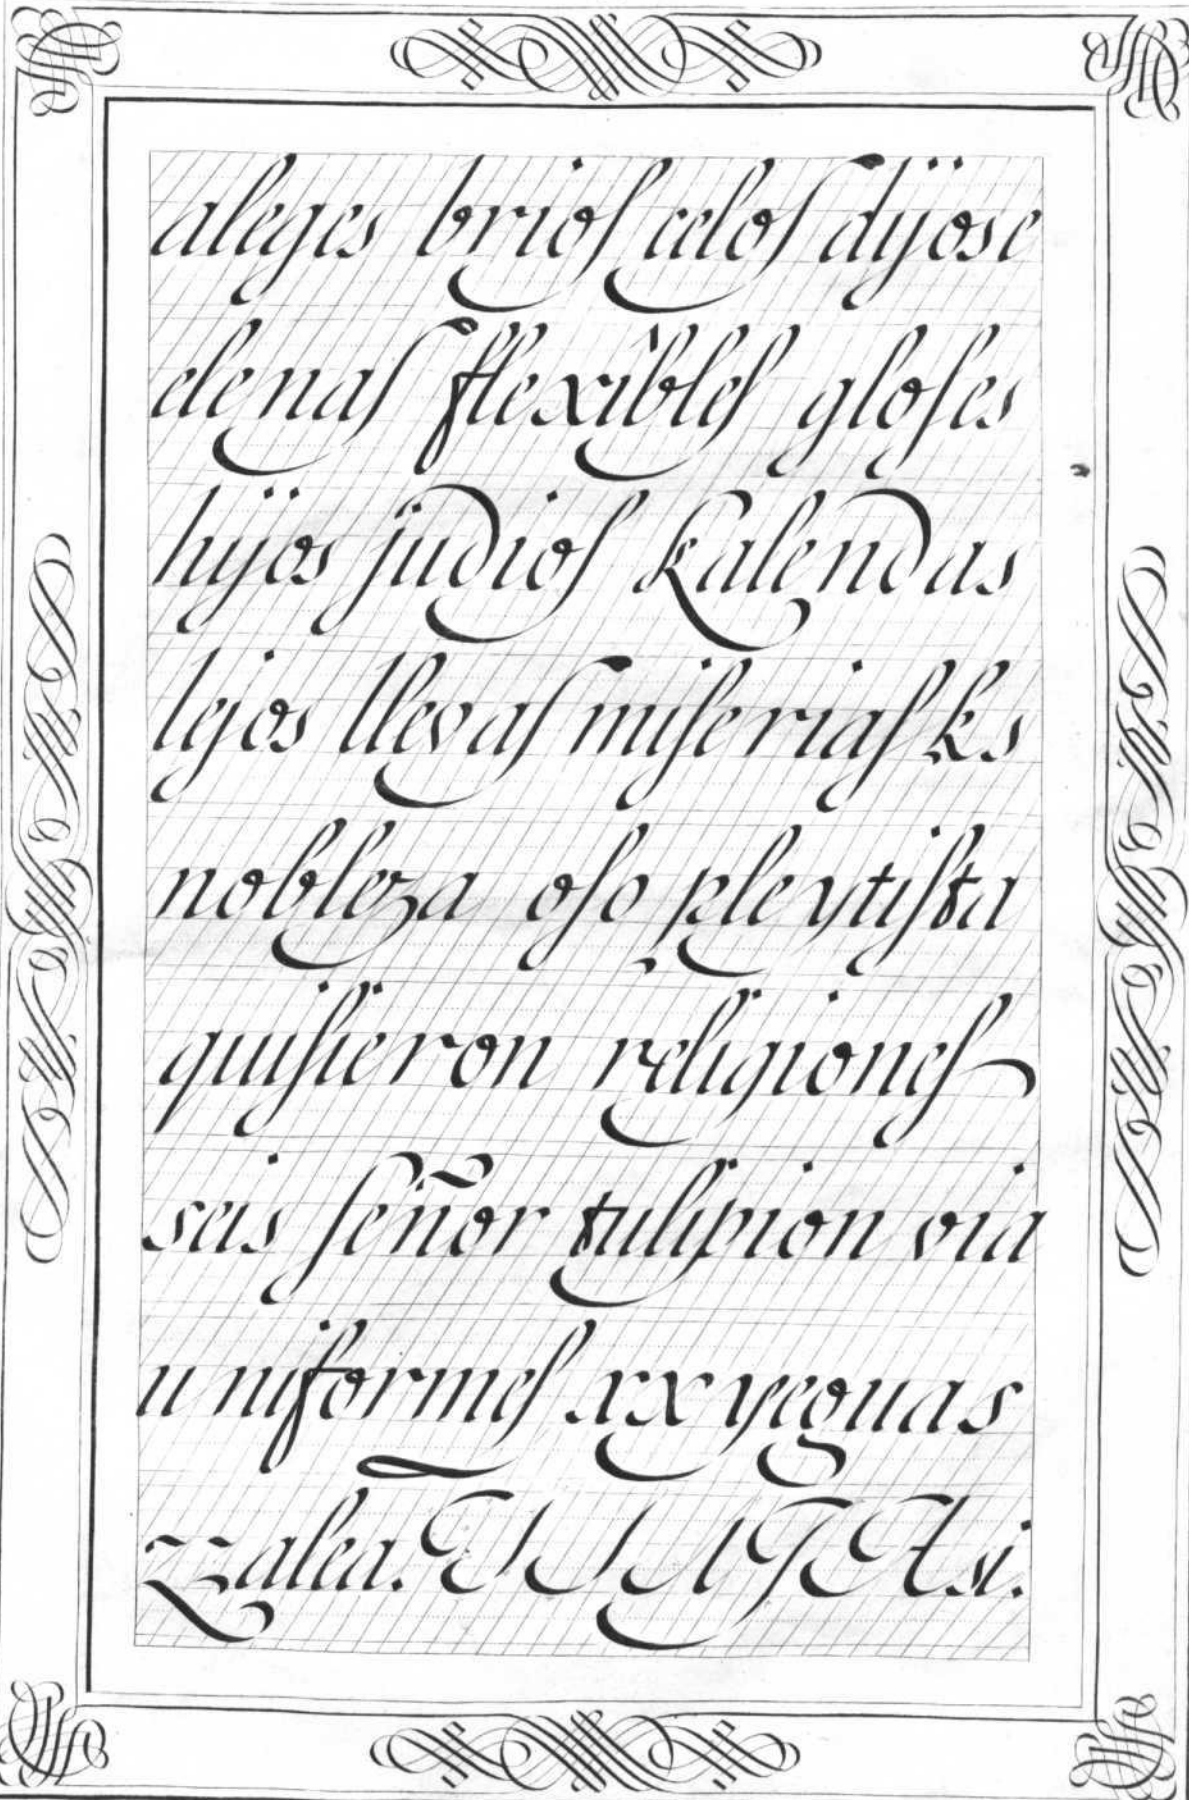 aleges brioſ celoſ dijose
elenaſ flexibleſ gloſes
hijos judioſ Kalendas
lejos llevaſ miſeriaſ ks
nobleza oſo pleytiſta
quiſieron religioneſ
seis ſeñor tulipion via
uniformeſ xx yeguas
zzalea.